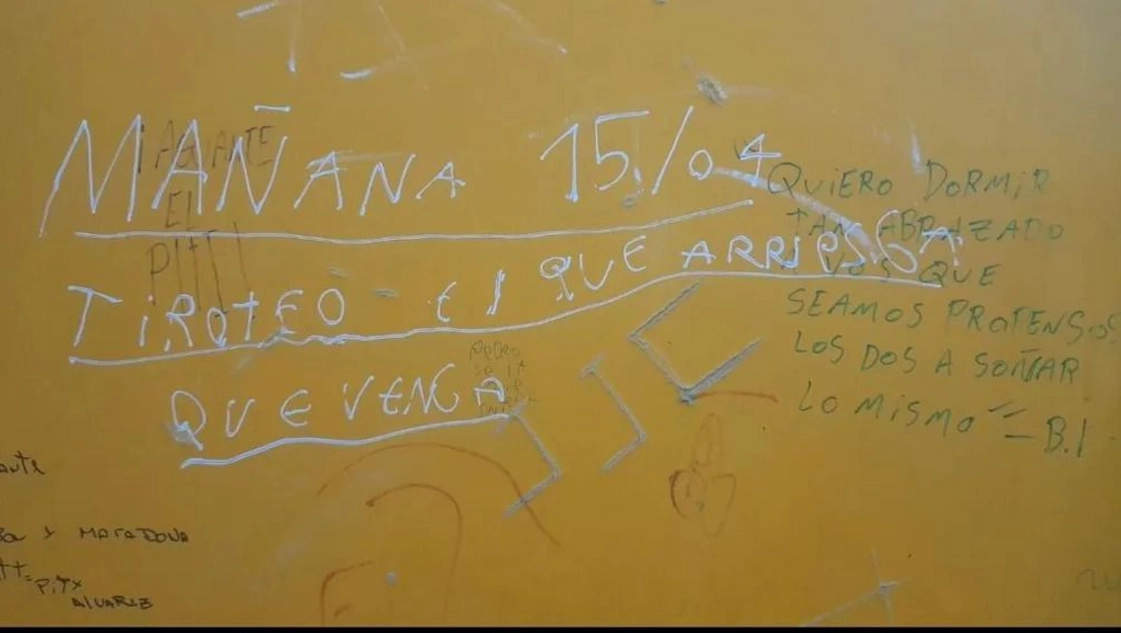 MAÑANA 15/04
TiROTEO El QUE ARRIESGA
QUE VENGA
AGUANTE
EL
PITI
QUiERO DORMiR
TAN ABRAZADO
A VOS QUE
SEAMOS PROPENSOS
LOS DOS A SOÑAR
LO MiSMO = B.I
y MARADONA
PiTy
ALVAREZ